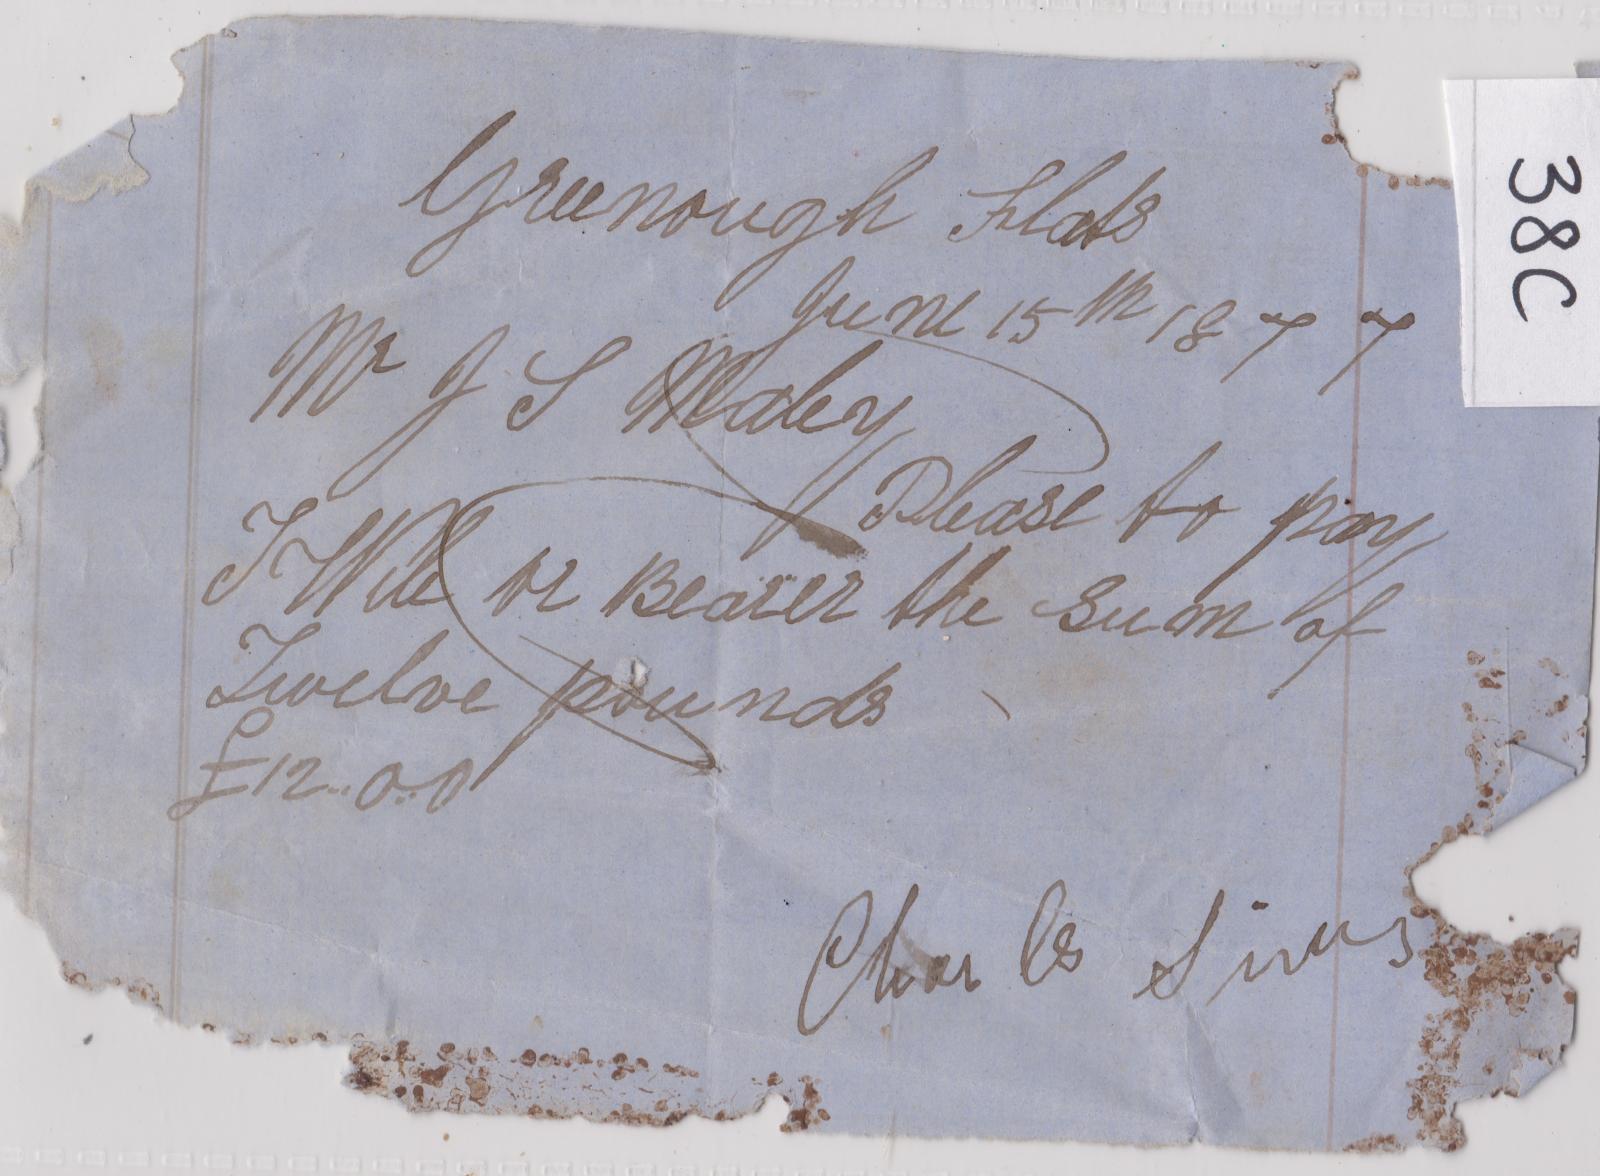 Greenough Flats
June 15th 1877
Mr J S Maley
Please to pay
T Will or Bearer the Sum of
Twelve pounds
£12..0..0
Charles Sims
38C